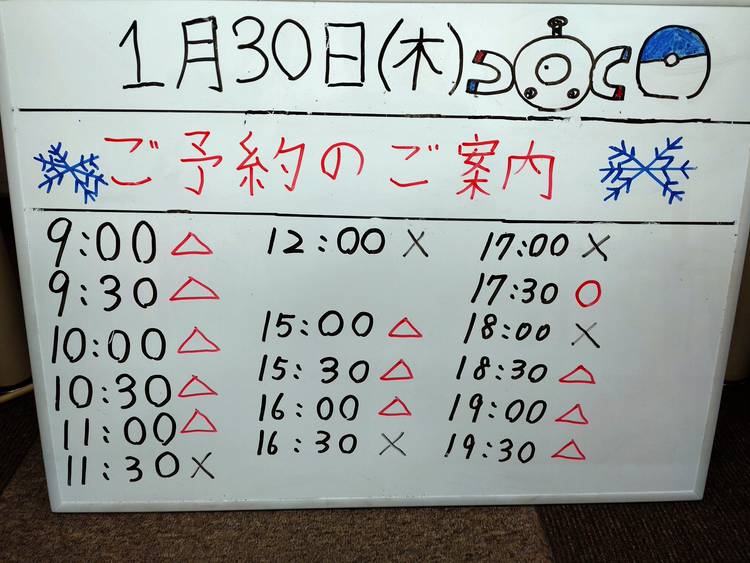 1月30日(木)
ご予約のご案内
9:00 △
9:30 △
10:00 △
10:30 △
11:00 △
11:30 ×
12:00 ×
15:00 △
15:30 △
16:00 △
16:30 ×
17:00 ×
17:30 ○
18:00 ×
18:30 △
19:00 △
19:30 △